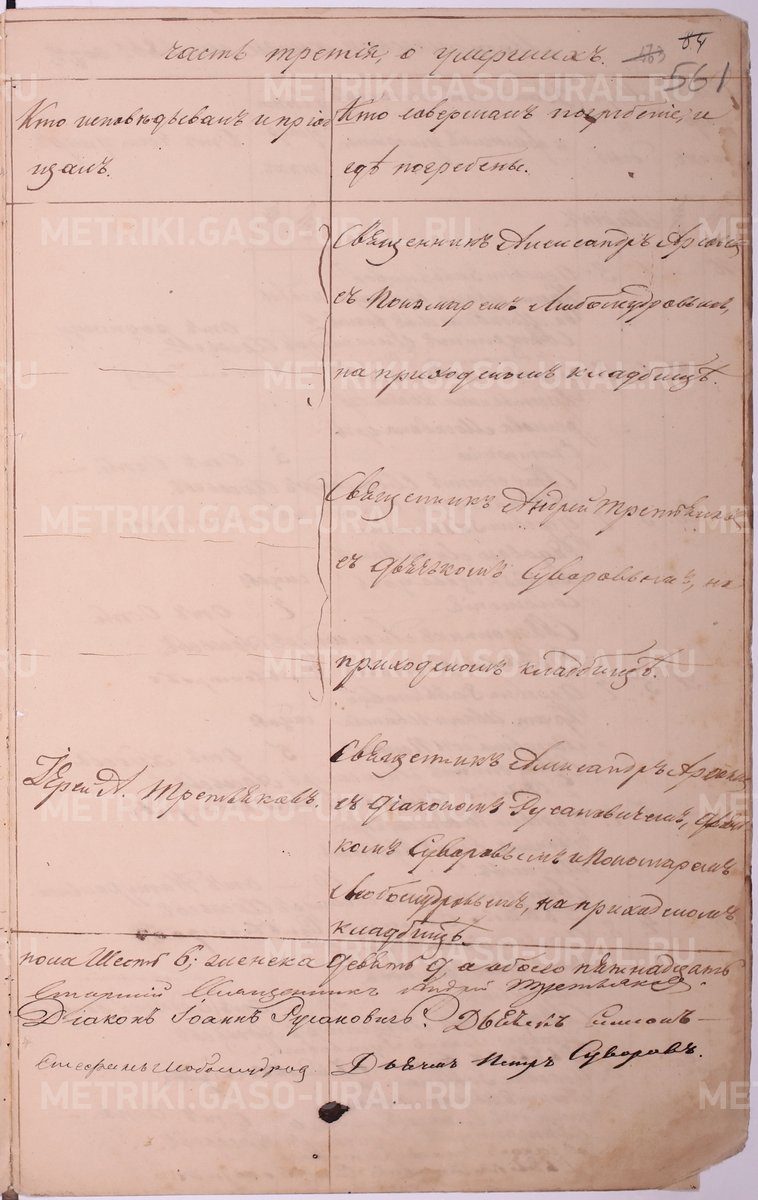 часть третія, о умершихъ.
163
54
561
Кто исповѣдывалъ и пріоб
щалъ.
Кто совершалъ погребеніе, и
гдѣ погребены.
Священникъ Александръ
съ Пономаремъ Любомудровымъ,
на приходскомъ кладбищѣ.
Священникъ Андрей Третьяковъ
съ дьячкомъ Суворовымъ, на
приходскомъ кладбищѣ.
Іерей А. Третьяковъ.
Священникъ Александръ
съ діакономъ Русановичемъ, дьяч
комъ Суворовымъ и Пономаремъ
Любомудровымъ, на приходскомъ
кладбищѣ.
пола Шесть 6; женска девять 9, а обоего пятнадцать
Старшій Священникъ Андрей Третьяковъ.
Діаконъ Іоаннъ Русановичь. Дьячекъ
Стефанъ Любомудров Дьячекъ Петръ Суворовъ.
METRIKI.GASO-URAL.RU